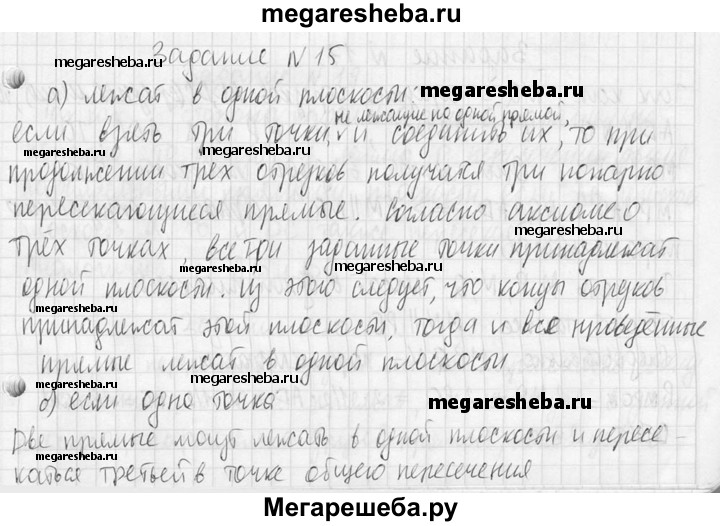 megaresheba.ru
Задание N 15
megaresheba.ru
а) лежат в одной плоскости: megaresheba.ru
не лежащие на одной прямой,
если взять три точки, и соединить их, то при
megaresheba.ru megaresheba.ru megaresheba.ru
продолжении трёх отрезков получатся три попарно
megaresheba.ru
пересекающиеся прямые. Согласно аксиоме о
megaresheba.ru
трёх точках, все три заданные точки принадлежат
megaresheba.ru megaresheba.ru
одной плоскости. Из этого следует, что концы отрезков
megaresheba.ru
принадлежат этой плоскости, тогда и все проведённые
megaresheba.ru
прямые лежат в одной плоскости
megaresheba.ru megaresheba.ru
б) если одна точка megaresheba.ru
Две прямые могут лежать в одной плоскости и пересе-
megaresheba.ru megaresheba.ru
каться третьей в точке общего пересечения
megaresheba.ru
Мегарешеба.ру